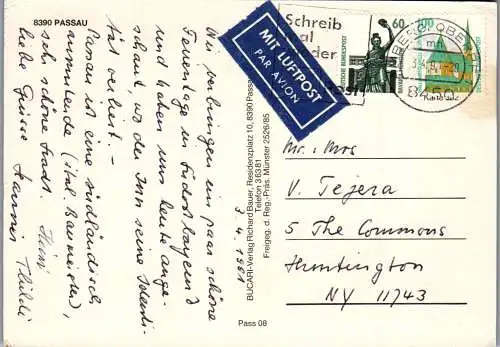 8390 PASSAU
3.4.1991
Wir verbringen ein paar schöne
Ferientage in Südostbayern
und haben uns heute ange-
schaut, wo der Inn seine Identi-
tät verliert.
Passau ist eine südländisch
anmutende (ital. Baumeister),
sehr schöne Stadt.
Liebe Grüsse Hannes
BUCARI-Verlag Richard Bauer, Residenzplatz 10, 8390 Passau
Telefon 36381
Freigeg. d. Reg.-Präs. Münster 2526/85
Pass 08
MIT LUFTPOST
PAR AVION
Schreib
mal
wieder
60
DEUTSCHE BUNDESPOST
Mr. + Mrs
V. Tejera
5 The Commons
Huntington
NY 11743